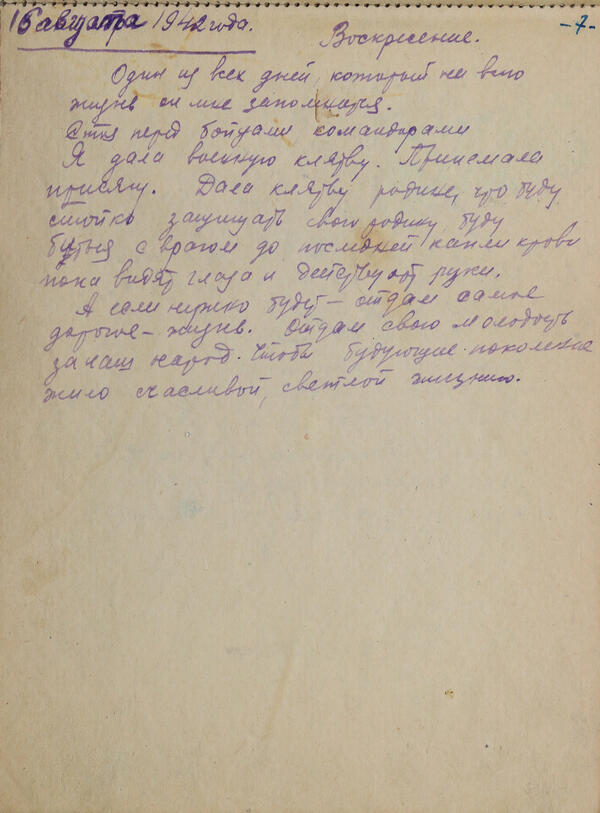 16 августа 1942 года.
Воскресение.
-7-
Один из всех дней, который на всю
жизнь он мне запомнится.
Стоя перед бойцами командирами
Я дала военную клятву. Принемала
присягу. Дала клятву родине, что буду
стойко защищать свою родину, буду
биться с врагом до последней капли крови
пока видят глаза и действуют руки.
А если нужно будут – отдам самое
дорогое – жизнь. Отдам свою молодость
за наш народ. Чтобы будующие поколение
жило счасливой, светлой жизнию.